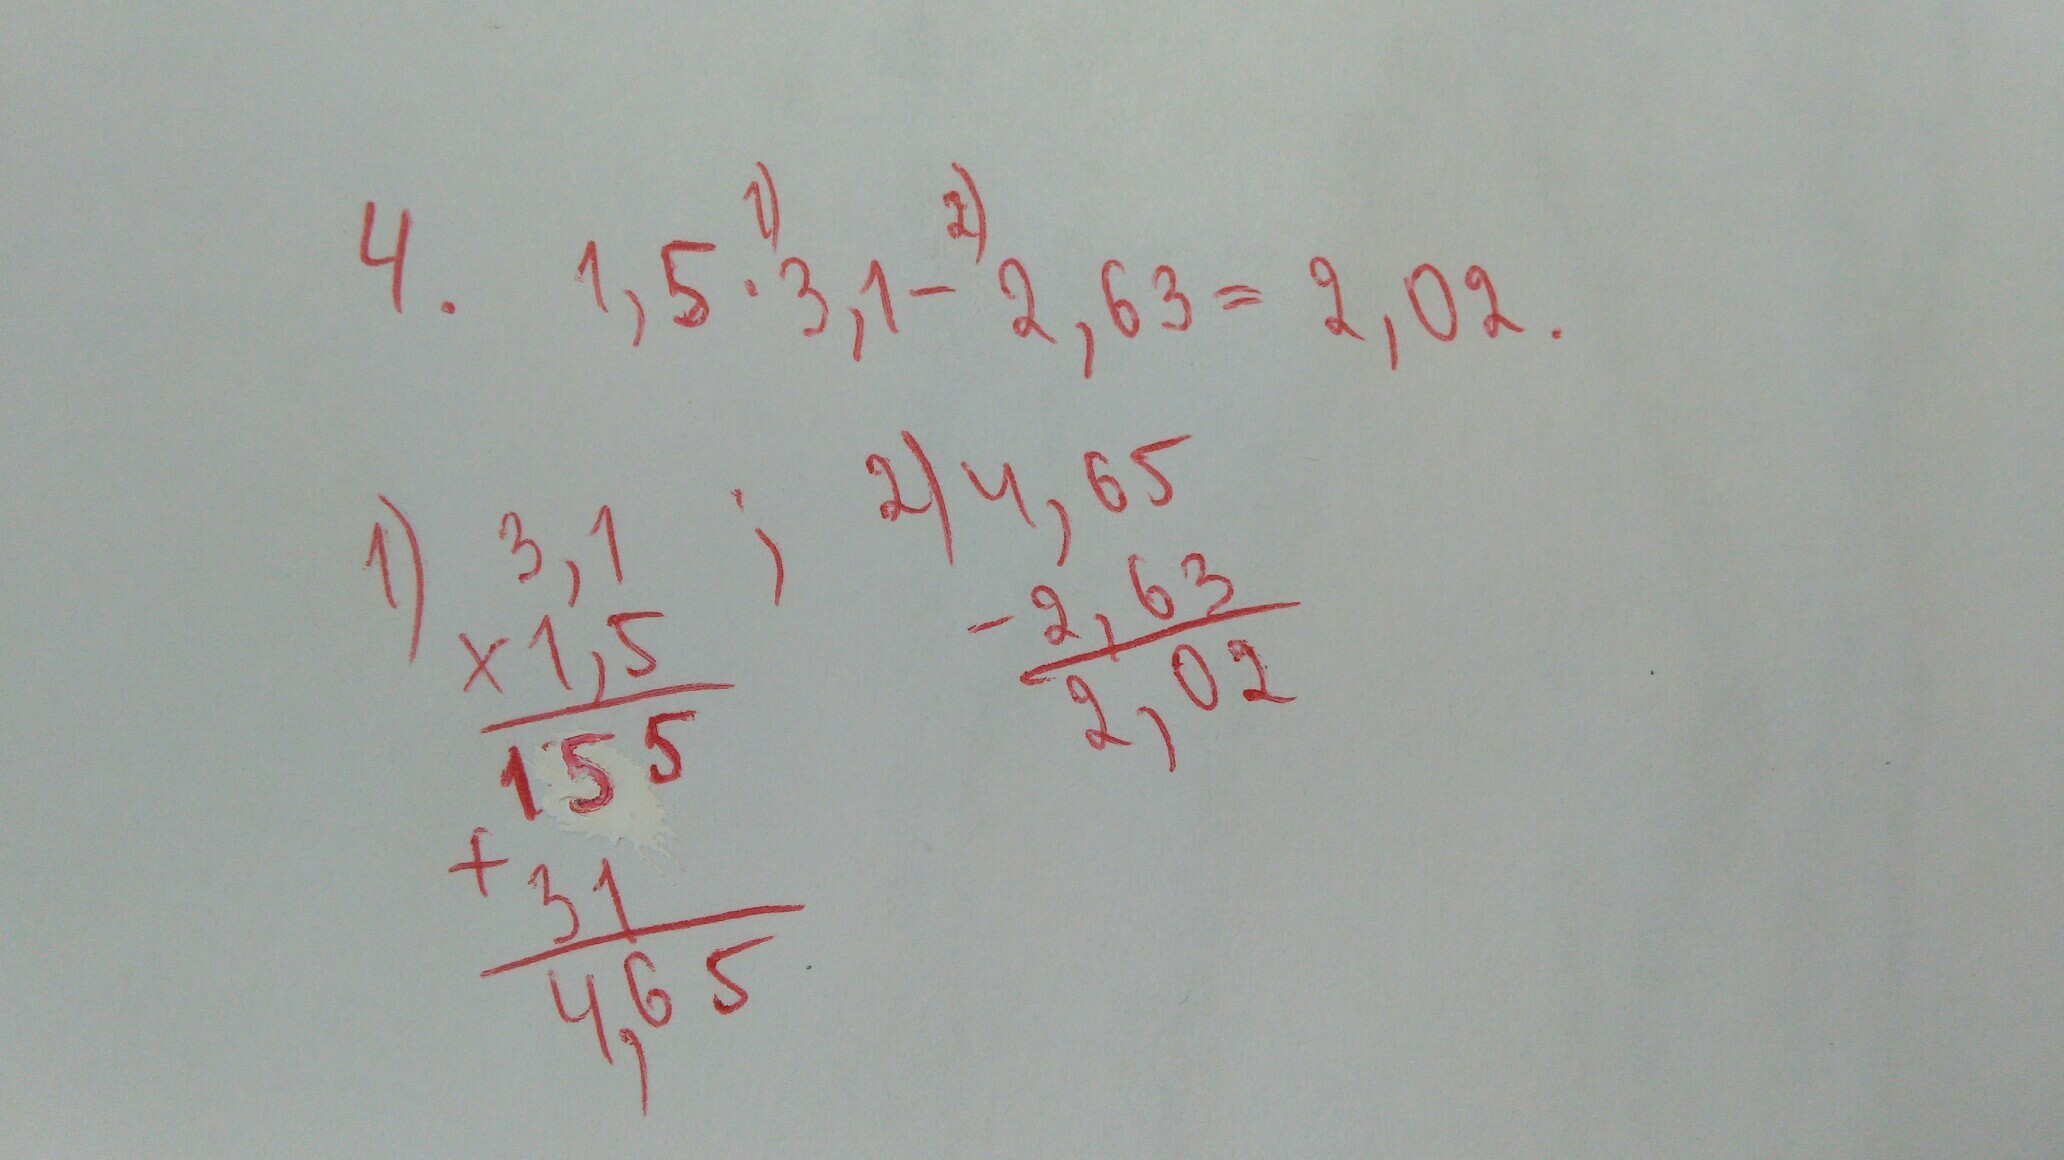 4. 1,5 · 3,1 - 2,63 = 2,02.
1) 2)
1) 3,1 ;
× 1,5
155
+ 31
4,65
2) 4,65
- 2,63
2,02